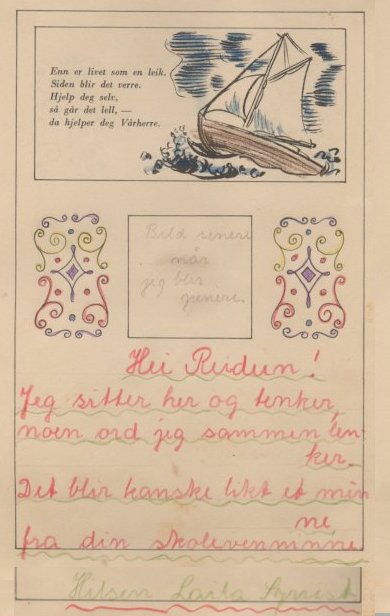 Enn er livet som en leik.
Siden blir det verre.
Hjelp deg selv,
så går det lell, —
da hjelper deg Vårherre.
Bild senere
når
jeg blir
penere.
Hei Reidun!
Jeg sitter her og tenker,
noen ord jeg sammen len-
ker.
Det blir kanske likt et min
ne
fra din skolevenninne
Hilsen Laila